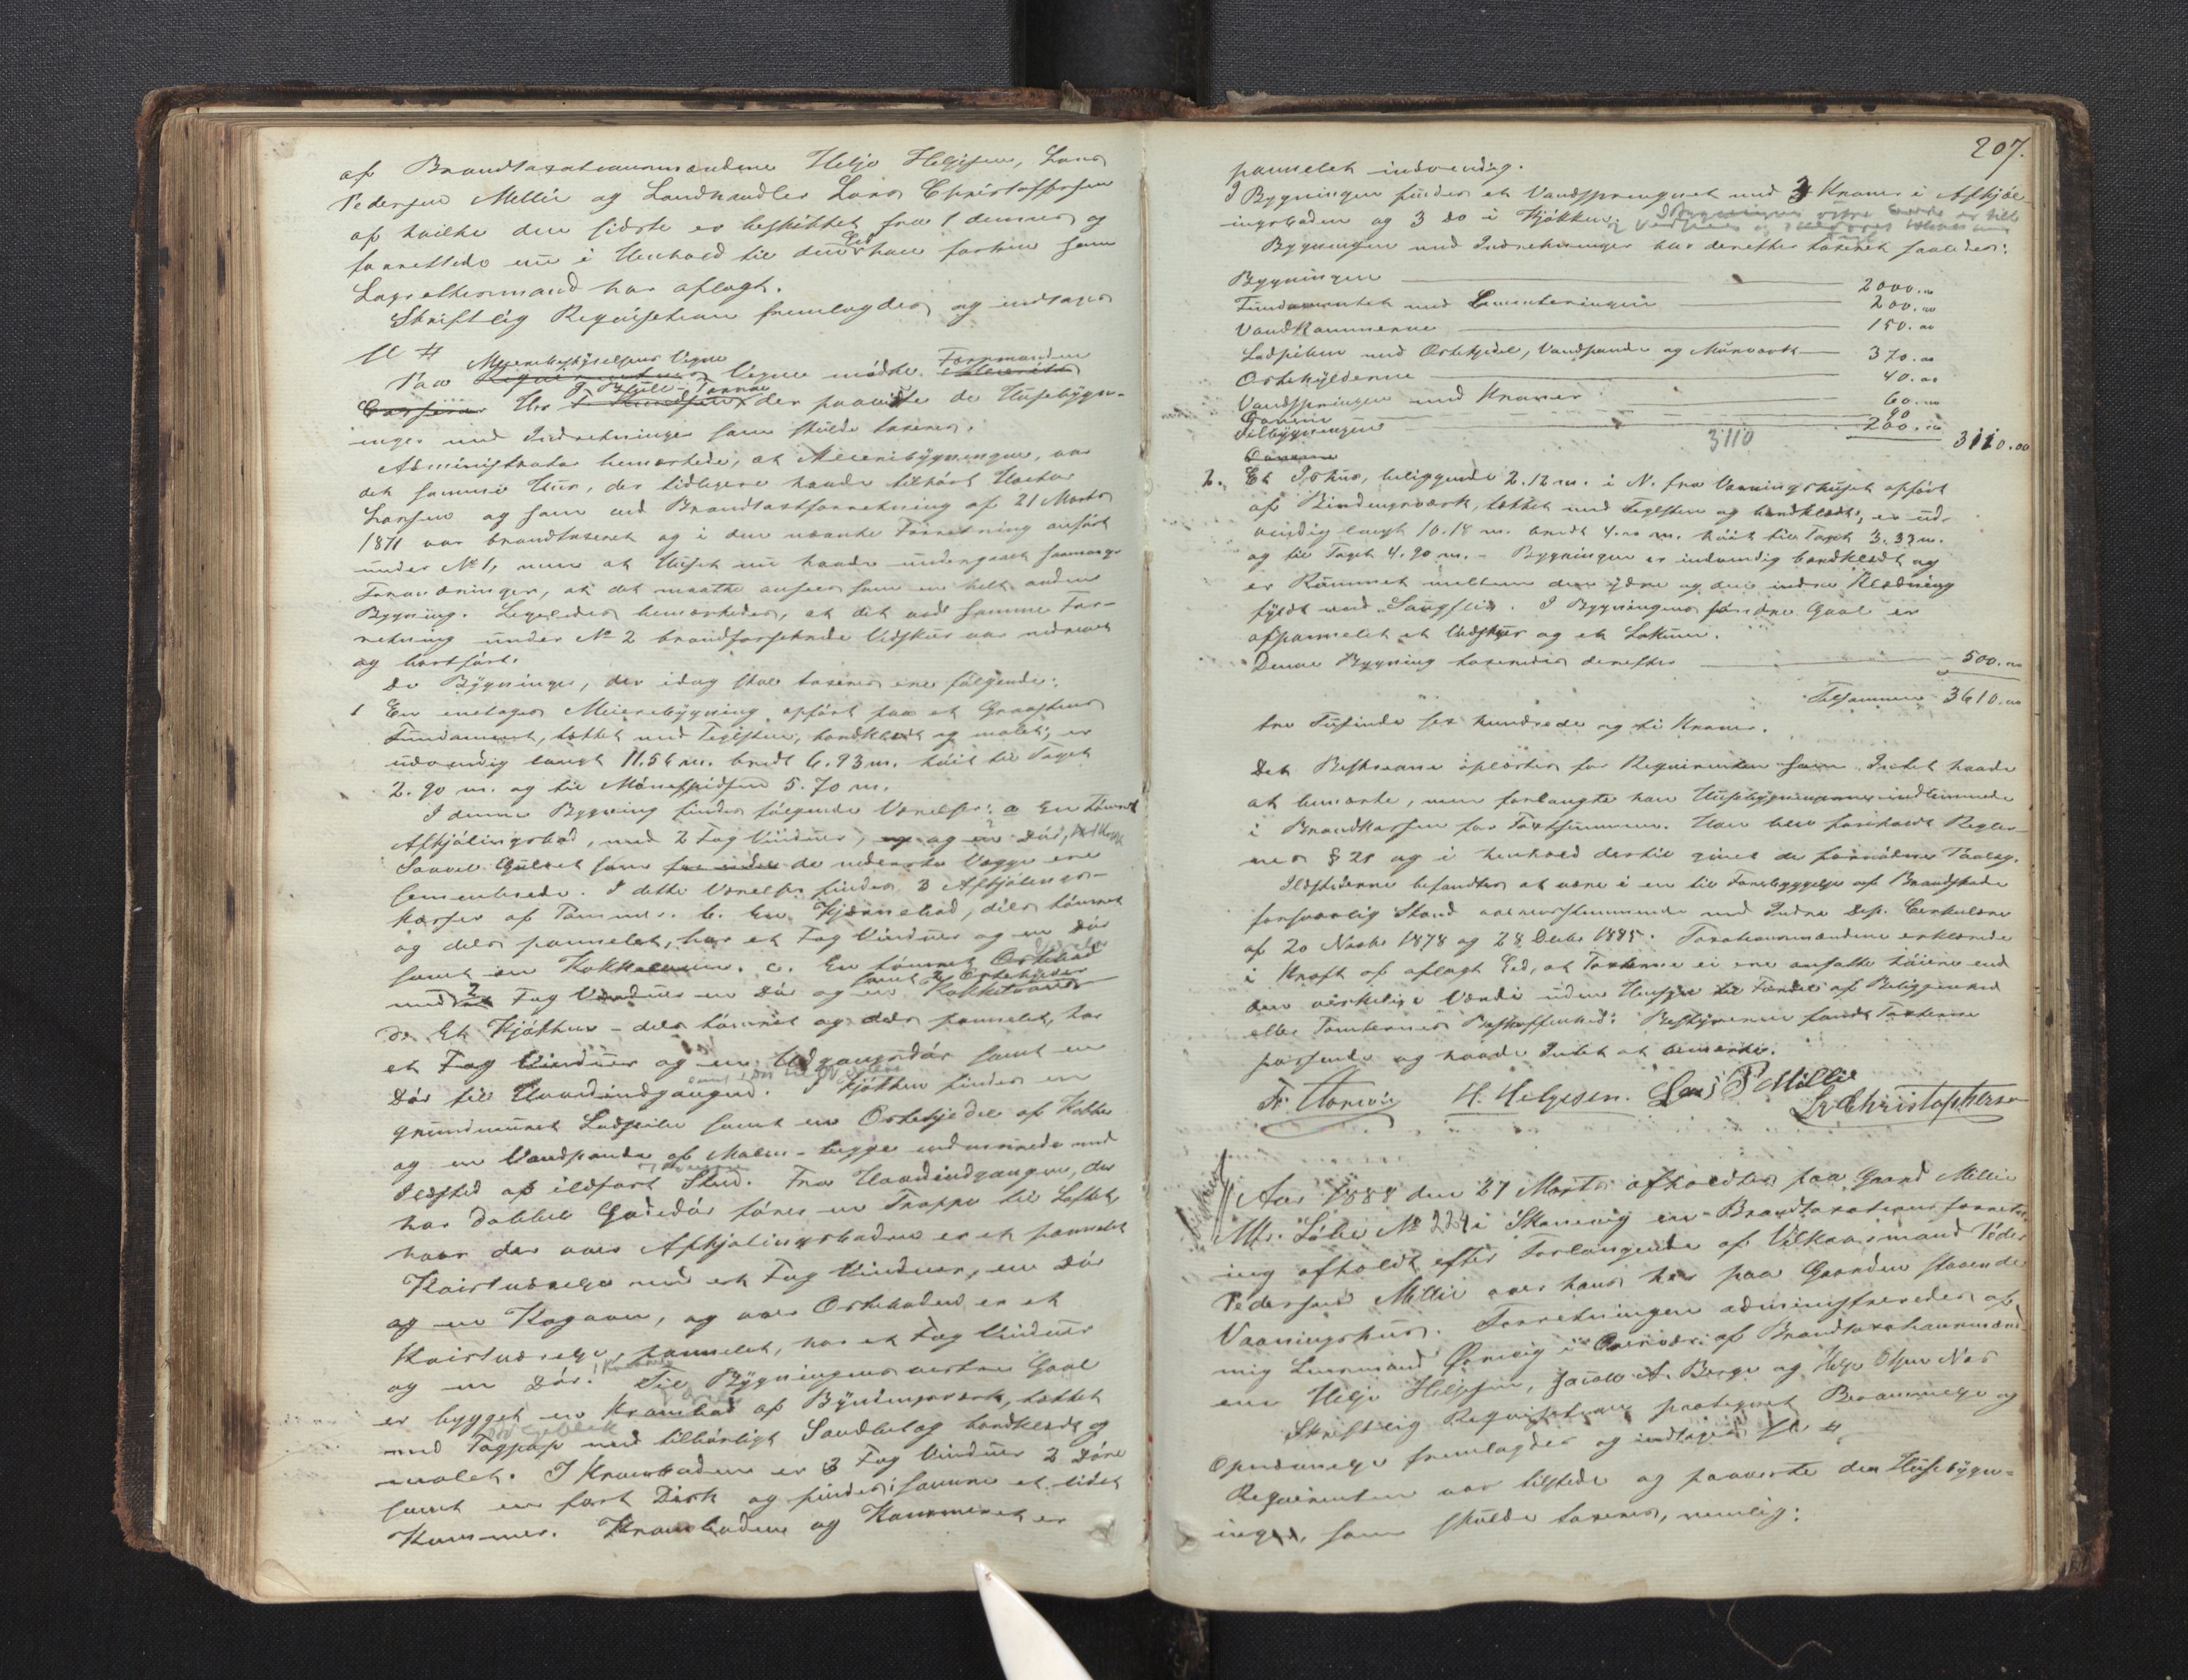 af Brandtaxationsmændene Helje Heljesen, Lars
Pedersen Millie og Landhandler Lars Christoffersen
af hvilke den sidste er beskikket fra 1 dennes og
forrettede nu i Henhold til den Ed han forhen som
Lagrettesmand har aflagt.
Skriftlig Reqvisition fremlagdes og indtages
Meieribestyrelsens Vegne Formanden
Paa Vegne mødte
Hr der paaviste de Husebygn-
inger med Indretninger som skulde taxeres.
Administrator bemærkede, at Meieribygningen, var
det samme Hus, der tidligere havde tilhørt
Larsen og som ved Brandtaxtforretning af 21 Marts
1871 var brandtaxeret og i den nævnte Forretning anført
under No 1, men at Huset nu havde undergaaet saamange
Forandringer, at det maatte ansees som en helt anden
Bygning. Ligeledes bemærkedes, at det ved samme For-
retning under No 2 brandforsikrede Vedskur var nedrevet
og bortført.
De Bygninger, der idag skal taxeres ere følgende:
1 En enetages Meieribygning opført paa et Graastens
Fundament, tættet med Teglsten, bordklædt og malet; er
udvendig langt 11.54 m. bredt 6.93 m. høit til Taget
2.90 m. og til Mønespidsen 5.70 m.
I denne Bygning findes følgende Værelser: a En tømret
Afkjølingsbod, med 2 Fag Vinduer, og en Dør,
Saavel Gulvet som de nederste Vægge ere
Cementerede. I dette Værelse findes 3 Afkjølings-
karser af Tømmer. b. En Kjærnebod, dels tømret
og dels pannelet, har et Fag Vinduer og en Dør
samt en Kokkelovn. c. En tømret Ostebod
samt 2 Ostehylder
med 2 Fag Vinduer en Dør og en
d. Et Kjøkken - dels tømret og dels pannelet, har
et Fag Vinduer og en Udgangsdør samt en
Dør til Hovedindgangen. I Kjøkken findes en
grundmuret Ladpibe samt en Ostekjedel af Kobber
og en Vandpande af Malm - begge indmurede med
Ildsted af ildfast Sten. Fra Hovedindgangen, der
har dobbel Gadedør fører en Trappe til Loftet,
hvor der over Afkjølingsboden er et pannelet
Kvistværelse med et Fag Vinduer, en Dør
og en Kogeovn, og over Osteboden er et
Kvistværelse, pannelet, har et Fag Vinduer
og en Dør. Til Bygningens vestre Gavl
er bygget en Krambod af Bindingsværk, tættet
med Tagpap med tilbørligt Sandbelag bordklædt og
malet. I Kramboden er 3 Fag Vinduer 2 Døre
samt en fast Disk og findes i samme et lidet
Kammer. Kramboden og Kammeret er
207.
pannelet indvendig.
I Bygningen findes et Vandspringet med 3 Kraner i Afkjøl-
ingsboden og 3 do i Kjøkken.
Bygningen med Indretninger blev derefter taxeret saaledes:
Bygningen 2000.00
Fundamentet med Cementeringen 200.00
Vandkummerne 150.00
Ladpiben med Ostekjedel, Vandpande og Murværk 370.00
Ostehylderne 40.00
Vandspringen med Kraner 60.00
Ovnene 90
Tilbygningen 200.00
3110 3110.00
2. Et Ishus, beliggende 2.12 m. i N. fra Vaaningshuset opført
af Bindingsværk, tættet med Teglsten og bordklædt; er ud-
vendig langt 10.18 m. bredt 4.00 m. høit til Taget 3.33 m.
og til Taget 4.90 m. - Bygningen er indvendig bordklædt og
er Rummet mellem den ydre og den indre Klædning
fyldt med Saugflis. I Bygningens søndre Gavl er
afpannelet et Vedskur og et Lokum.
Denne Bygning taxeredes derefter 500.00
Tilsammen 3610.00
tre Tusinde sex hundrede og ti Kroner.
Det Beskrevne oplæstes for Reqvirenten som Intet havde
at bemærke, men forlangte han Husebygningerne indlemmede
i Brandkassen for Taxtsummen. Han blev foreholdt Regler-
nes § 21 og i henhold dertil givet de fornødne Paalæg.
Ildstederne befandtes at være i en til Forebyggelse af Brandskade
forsvarlig Stand overensstemmende med Indre Dep. Cirkulære
af 20 Novbr 1878 og 28 Decbr 1885. Taxationsmændene erklærede
i Kraft af aflagt Ed, at Taxterne ei ere ansatte høiere end
den virkelige Værdi uden Hensyn til Fordel af Beliggenhed
eller Tomternes Beskaffenhed. Bestyreren fandt Taxterne
passende og havde Intet at bemærke.
H. Helgesen. Lars P Millie
L Christophersen
Aar 1888 den 27 Marts afholdtes paa Gaard Millie
Mtr. Løbe No 224 i Skonevig en Brandtaxationsforretn-
ing afholdt efter Forlangende af Vilkaarsmand Peder
Pedersen Millie over hans her paa Gaarden staaende
Vaaningshus. Forretningen administreredes af
mig Lensmand i Overvær af Brandtaxationsmænd-
ene Helje Heljesen, Jacob A. Berge og Helje Olsen Næs
Skriftlig Reqvisition paategnet Berammelse og
Opnævnelse fremlagdes og indtages
Reqvirenten var tilstede og paaviste den Husebygn-
ing, som skulde taxeres, nemlig: